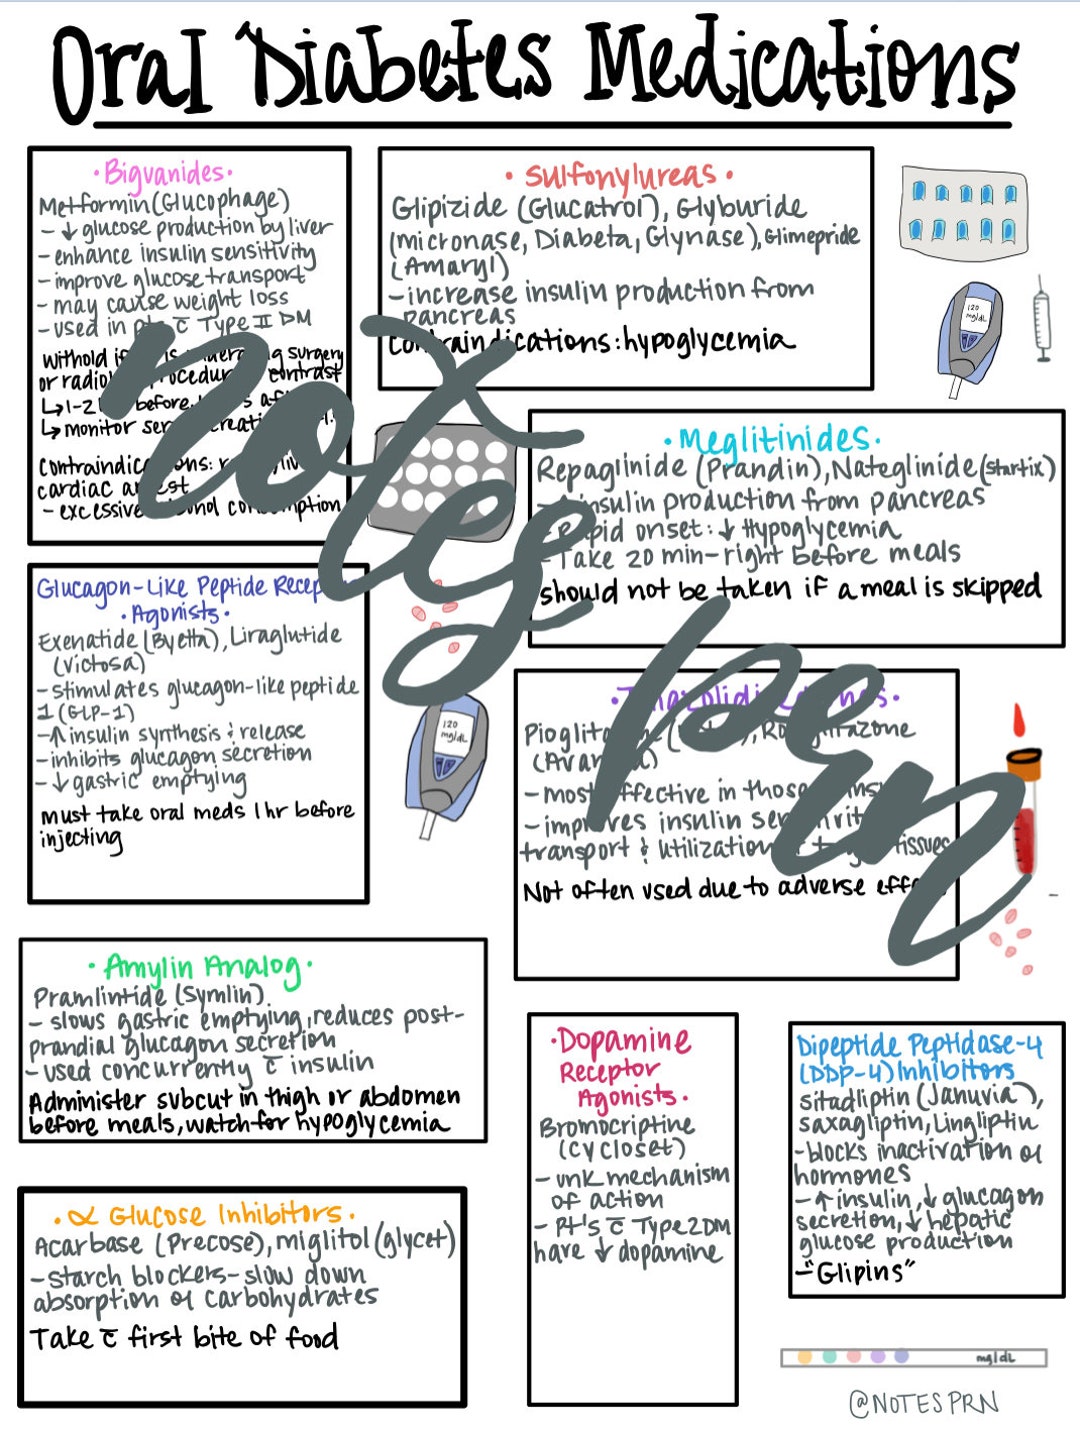 Oral Diabetes Medications
·Biguanides·
Metformin (Glucophage)
- ↓ glucose production by liver
- enhance insulin sensitivity
- improve glucose transport
- may cause weight loss
- used in pts c̄ Type II DM
withold if surgery
or radio contrast
↳ 1-2 before
↳ monitor
contraindic
cardiac arrest
- excessive
· Sulfonylureas ·
Glipizide (Glucatrol), Glyburide
(micronase, Diabeta, Glynase), Glimepride
(Amaryl)
- increase insulin production from
pancreas
contraindications: hypoglycemia
120
mg/dL
·Meglitinides·
Repaglinide (Prandin), Nateglinide (Starlix)
insulin production from pancreas
- Rapid onset: ↓ Hypoglycemia
- Take 20 min-right before meals
should not be taken if a meal is skipped
Glucagon-Like Peptide Recep
·Agonists·
Exenatide (Byetta), Liraglutide
(Victosa)
- stimulates glucagon-like peptide
1 (GLP-1)
- ↑ insulin synthesis & release
- inhibits glucagon secretion
- ↓ gastric emptying
must take oral meds 1 hr before
injecting
120
mg/dL
Pioglit
(Avan
- most effective in those
- improves insulin
transport & utilization tissues
Not often used due to adverse
·Amylin Analog·
Pramlintide (Symlin)
- slows gastric emptying, reduces post-
prandial glucagon secretion
- used concurrently c̄ insulin
Administer subcut in thigh or abdomen
before meals, watch for hypoglycemia
·Dopamine
Receptor
Agonists·
Bromocriptine
(cycloset)
- unk mechanism
of action
- Pt's c̄ Type 2 DM
have ↓ dopamine
Dipeptide Peptidase-4
(DDP-4) Inhibitors
Sitadliptin (Januvia),
saxagliptin, Lingliptin
- blocks inactivation of
hormones
- ↑ insulin, ↓ glucagon
secretion, ↓ hepatic
glucose production
- "Glipins"
· ∝ Glucose Inhibitors ·
Acarbase (Precose), miglitol (glycet)
- starch blockers - slow down
absorption of carbohydrates
Take c̄ first bite of food
mg/dL
@NOTESPRN
notes prn